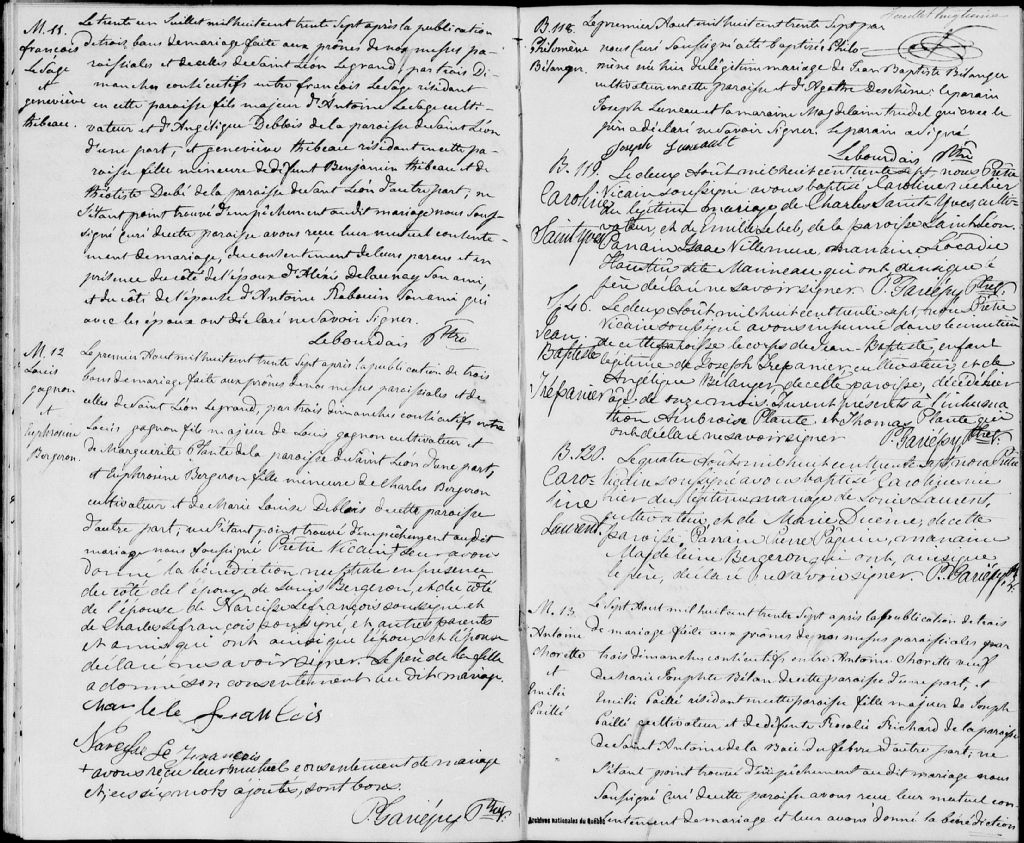 M. 11.
françois
LeSage
et
geneviève
thibeau.
Le trente un Juillet mil huit cent trente Sept après la publication
de trois bans de mariage faite aux prônes de nos messes pa-
roissiales et de celles de Saint Léon Legrand, par trois Di-
manches consécutifs entre françois LeSage résidant
en cette paroisse fils majeur d'Antoine LeSage culti-
vateur et d'Angélique Deblois de la paroisse de Saint Léon
d'une part, et geneviève thibeau résidant en cette pa-
roisse fille mineure de défunt Benjamin thibeau et de
théotiste Dubé de la paroisse de Saint Léon d'autre part, ne
S'étant point trouvé d'empêchement au dit mariage nous Sous-
signé curé de cette paroisse avons reçu leur mutuel consente-
ment de mariage, du consentement de leurs parens et en
présence du côté de l'époux d'Alexis Delaunay Son ami,
et du côté de l'épouse d'Antoine Rabouin Son ami qui
avec les époux ont déclaré ne Savoir Signer.
Lebourdais Ptre
M. 12
Louis
gagnon
et
Euphrosine
Bergeron.
Le premier Aout mil huit cent trente Sept après la publication de trois
bans de mariage faite aux prônes de nos messes paroissiales et de
celles de Saint Léon Legrand, par trois dimanches consécutifs entre
Louis gagnon fils majeur de Louis gagnon cultivateur et
de Marguerite Plante de la paroisse de Saint Léon d'une part,
et Euphroisine Bergeron fille mineure de Charles Bergeron
cultivateur et de Marie Louise Deblois de cette paroisse
d'autre part, ne S'étant point trouvé d'empêchement au dit
mariage nous Soussigné Prêtre Vicaire + leur avons
donné la bénédiction nuptiale en présence
du côté de l'époux de Louis Bergeron, et du côté
de l'épouse de Narcisse Lefrançois soussigné et
de Charles Lefrançois soussigné, et autres parents
et amis qui ont ainsi que l'époux et l'épouse
déclaré ne savoir signer. Le père de la fille
a donné son consentement au dit mariage.
Char le le franCois
Narcisse Le Francois
+ avons reçu leur mutuel consentement de mariage
et ces six mots ajoutés, sont bons.
P. Gariépy Ptre V.
B. 118.
Philomène
Bélanger.
Le premier Aout mil huit cent trente Sept par
nous curé Soussigné a été baptisée Philo-
mène née hier du légitime mariage de Jean Baptiste Bélanger
cultivateur en cette paroisse et d'Agathe Deschène: le parain
Joseph Luneau et la maraine Magdelaine trudel qui avec le
père a déclaré ne Savoir Signer. Le parain a Signé
Joseph Luneault
Lebourdais Ptre
B. 119.
Caroline
Saint Yves
Le deux Août mil huit cent trente sept, nous Prêtre
Vicaire soussigné avons baptisé Caroline née hier
du légitime mariage de Charles Saint-Yves, culti-
vateur, et de Emilie Lebel, de la paroisse Saint-Léon.
Parrain Isaac Villemure, marraine Léocadie
Houstin dite Manneau qui ont ainsi que le
père déclaré ne savoir signer. P. Gariépy Ptre V.
S. 46.
Jean
Baptiste
Trépanier
Le deux Août mil huit cent trente sept, nous Prêtre
Vicaire soussigné avons inhumé dans le cimetière
de cette paroisse le corps de Jean-Baptiste, enfant
légitime de Joseph Trépanier, cultivateur, et de
Angélique Bélanger, de cette paroisse, décédé hier
âgé de onze mois. Furent présents à l'inhuma-
tion Ambroise Plante, et Thomas Plante qui
ont déclaré ne savoir signer P. Gariépy Ptre V.
B. 120.
Caro-
line
Laurent.
Le quatre Août mil huit cent trente sept, nous Prêtre
Vicaire soussigné avons baptisé Caroline née
hier du légitime mariage de Louis Laurent,
cultivateur, et de Marie Ducème, de cette
paroisse. Parrain Pierre Papuin, marraine
Magdeleine Bergeron, qui ont, ainsi que
le père, déclaré ne savoir signer. P. Gariépy Ptre V.
M. 13.
Antoine
Chorette
et
Emilie
Paillé
Le Sept Aout mil huit cent trente Sept après la publication de trois
de mariage faite aux prônes de nos messes paroissiales par
trois dimanches consécutifs entre Antoine Chorette veuf
de Marie Josephte Bélan de cette paroisse d'une part, et
Emilie Paillé résidant en cette paroisse fille majeur de Joseph
Paillé cultivateur et de défunte Rosalie Richard de la paroisse
de Saint Antoine de la Baie du febvre d'autre part, ne
S'étant point trouvé d'empêchement au dit mariage nous
Soussigné curé de cette paroisse avons reçu leur mutuel con-
sentement de mariage et leur avons donné la bénédiction
Archives nationales du Québec